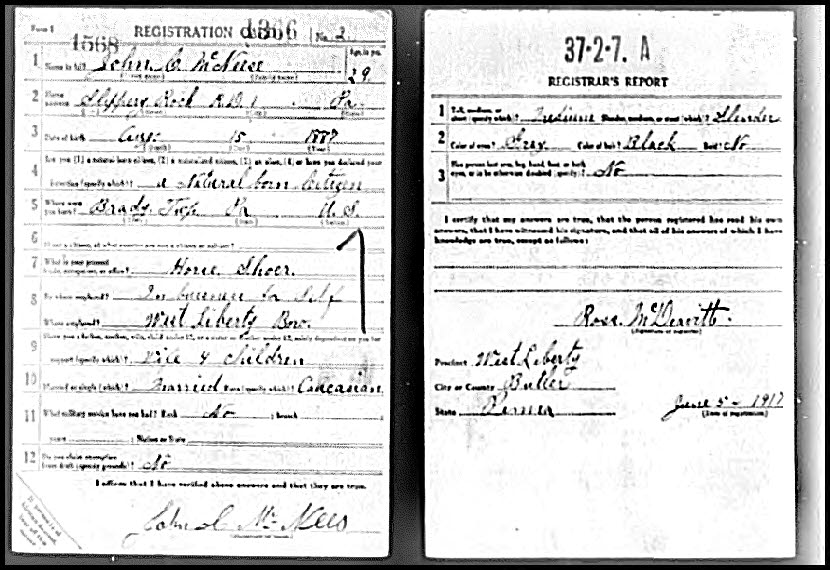 Form 1
REGISTRATION CARD
1366
No. 2
1568
1 Name in full John McNeese
Age, in yrs.
29
2 Home address Slippery Rock R.D. 1 Pa
3 Date of birth Aug 15 1887
Are you (1) a natural born citizen, (2) a naturalized citizen, (3) an alien, (4) or have you declared your
4 intention (specify which)? a Natural born Citizen
5 Where were you born? Brady Twp Pa U.S.
6 If not a citizen, of what country are you a citizen or subject?
7 What is your present trade, occupation, or office? Horse Shoer
8 By whom employed? In business for Self
Where employed? West Liberty Boro.
9 Have you a father, mother, wife, child under 12, or a sister or brother under 12, solely dependent on you for
support (specify which)? Wife 4 Children
10 Married or single (which)? Married Race (specify which)? Caucasian
11 What military service have you had? Rank No ; branch
years ; Nation or State
12 Do you claim exemption from draft (specify grounds)? No
I affirm that I have verified above answers and that they are true.
37-2-7. A
REGISTRAR'S REPORT
1 Tall, medium, or short (specify which)? Medium Slender, medium, or stout (which)? Slender
2 Color of eyes? Gray Color of hair? Black Bald? No
3 Has person lost arm, leg, hand, foot, or both eyes, or is he otherwise disabled (specify)? No
I certify that my answers are true, that the person registered has read his own
answers, that I have witnessed his signature, and that all of his answers of which I have
knowledge are true, except as follows:
Ross McDeavitt.
(Signature of registrar)
Precinct West Liberty
City or County Butler
State Penna
June 5 - 1917
(Date of registration)